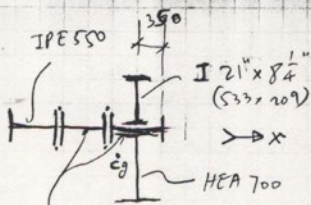 350
IPE 550
I 21" x 8 1/4"
(533 x 209)
x
cg
HEA 700